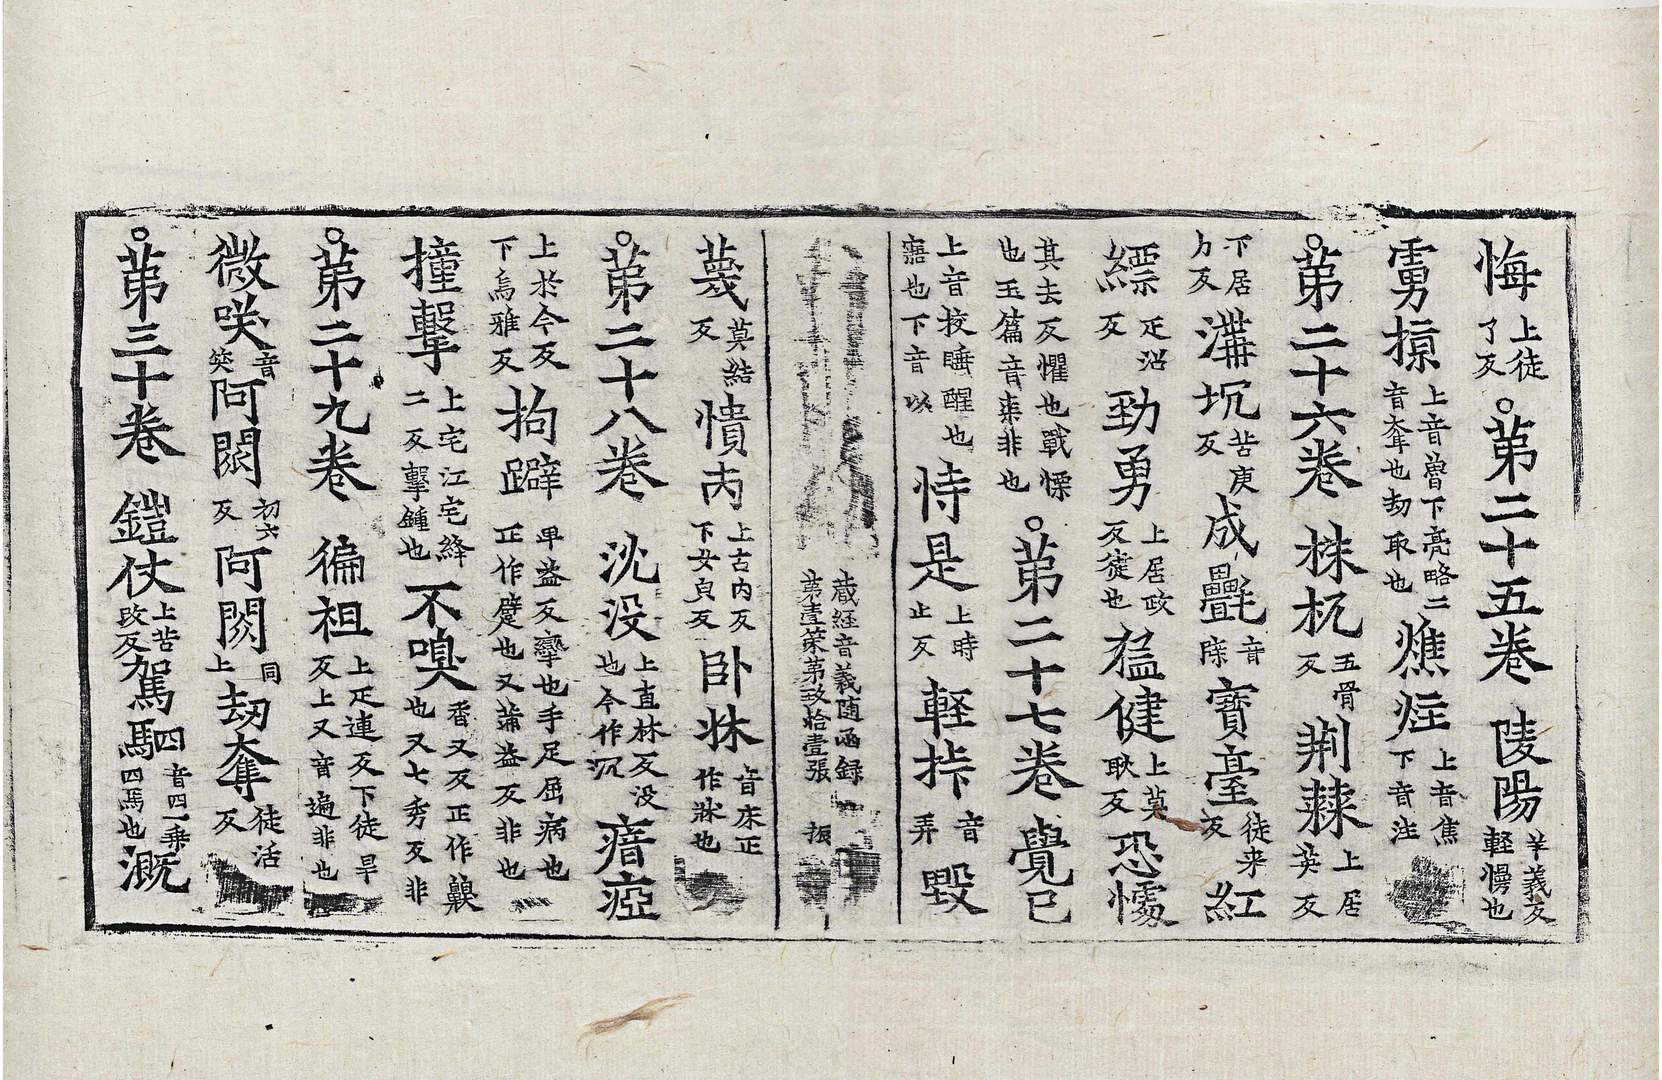 悔上徒了反○第二十五卷 陵陽羊義反輕慢也
雩掠上音曽下亮略二音奪也劫取也 燋炷上音焦下音注
○第二十六卷 株杌五骨反 荆棘上居英反
下居力反 溝坑苦庚反 成㲲音牒 寳臺徒来反 紅
縹疋沼反 勁勇上居政反徤也 猛健上莫耿反 恐懅
其去反懼也戰慄也玉篇音㐮非也○第二十七卷 覺已
上音挍睡醒也寤也下音以 恃是上時止反 輕挊音弄 毀
藏経音義随函録第壹第致拾壹張 振
蔑莫結反 憒丙上古内反下女皃反 卧牀音床正作牀也
○第二十八卷 沈没上直林反没也今作沉 瘖瘂
上於今反下烏雅反 拘躃卑益反攣也手足屈病也正作躄也又蒲益反非也
撞擊上宅江宅絳二反擊鍾也 不嗅香又反正作齅也又七秀反非
○第二十九卷 徧袒上疋連反下徒旱反上又音遍非也
微咲音笑 阿閦初六反 阿閦同上 劫奪徒活反
○第三十卷 鎧仗上苦改反 駕駟四音四一乗四馬也 溉